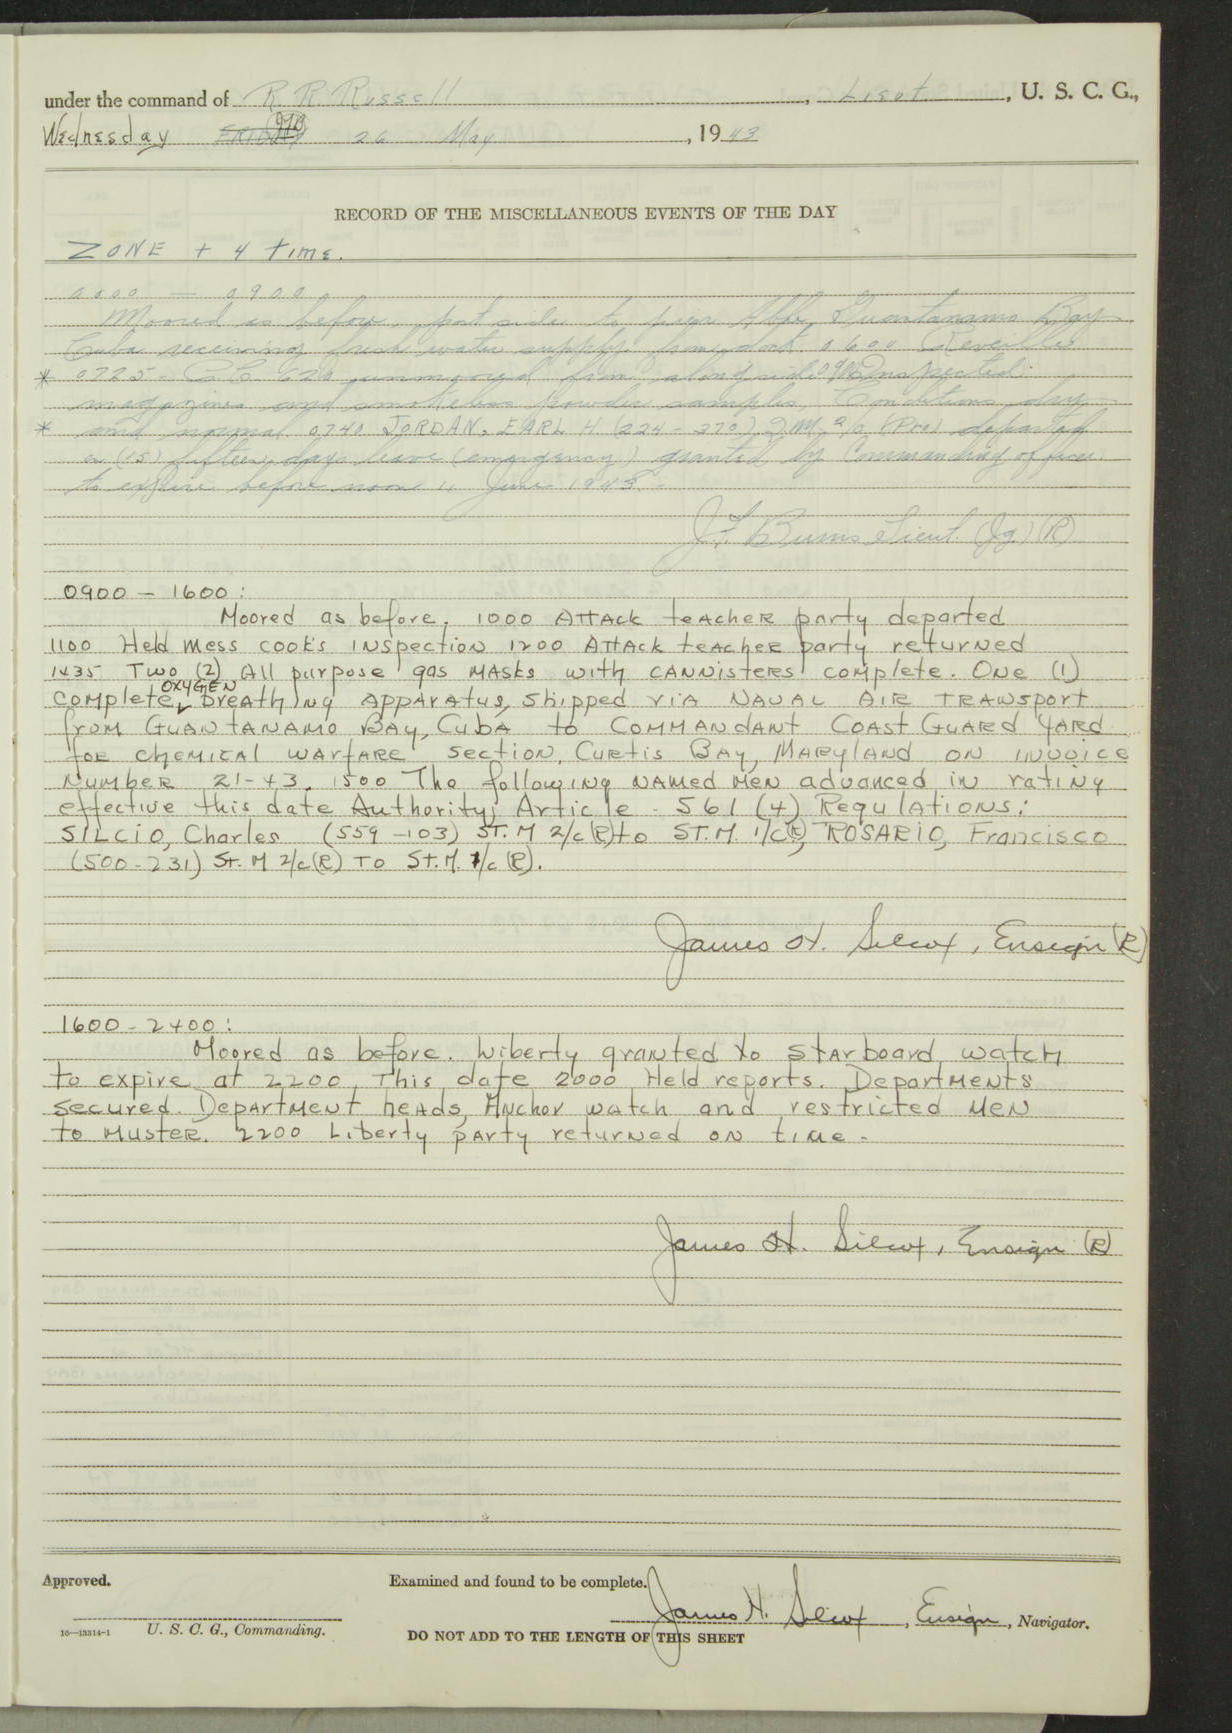 under the command of R. R. Russell, Lieut., U. S. C. G.,
Wednesday 26 May, 1943
RECORD OF THE MISCELLANEOUS EVENTS OF THE DAY
ZONE + 4 time.
0000 — 0900
Moored as before, port side to pier Guantanamo Bay
Cuba receiving fresh water supply from dock. 0600 Reveille
* 0725 - C.G. unmoored from alongside. Inspected
magazines and smokeless powder samples, Conditions dry
* and normal. 0740 JORDAN, EARL H (224-270) departed
on (15) fifteen days leave (emergency) granted by Commanding officer
to expire before noon 11 June 1943.
J. F. Burns Lieut. (Jg.) (R)
0900 - 1600:
Moored as before. 1000 Attack teacher party departed
1100 Held mess cook's inspection 1200 Attack teacher party returned
1435 Two (2) All purpose gas masks with cannisters complete. One (1)
complete OXYGEN breathing apparatus, shipped via Naval Air Transport
from Guantanamo Bay, Cuba to Commandant Coast Guard Yard
for chemical warfare section, Curtis Bay, Maryland on invoice
Number 21-43. 1500 The following named men advanced in rating
effective this date Authority; Article - 561 (4) Regulations:
SILCIO, Charles (559-103) ST. M 2/c (R) to ST. M. 1/c (R), ROSARIO, Francisco
(500-231) St. M 2/c (R) To St. M. 1/c (R).
James H. Silcox, Ensign (R)
1600 - 2400:
Moored as before. Liberty granted to starboard watch
to expire at 2200 This date 2000 Held reports. Departments
secured. Department heads, Anchor watch and restricted men
to muster. 2200 Liberty party returned on time -
James H. Silcox, Ensign (R)
Approved.
Examined and found to be complete.
James H. Silcox, Ensign, Navigator.
16—13314-1 U. S. C. G., Commanding.
DO NOT ADD TO THE LENGTH OF THIS SHEET